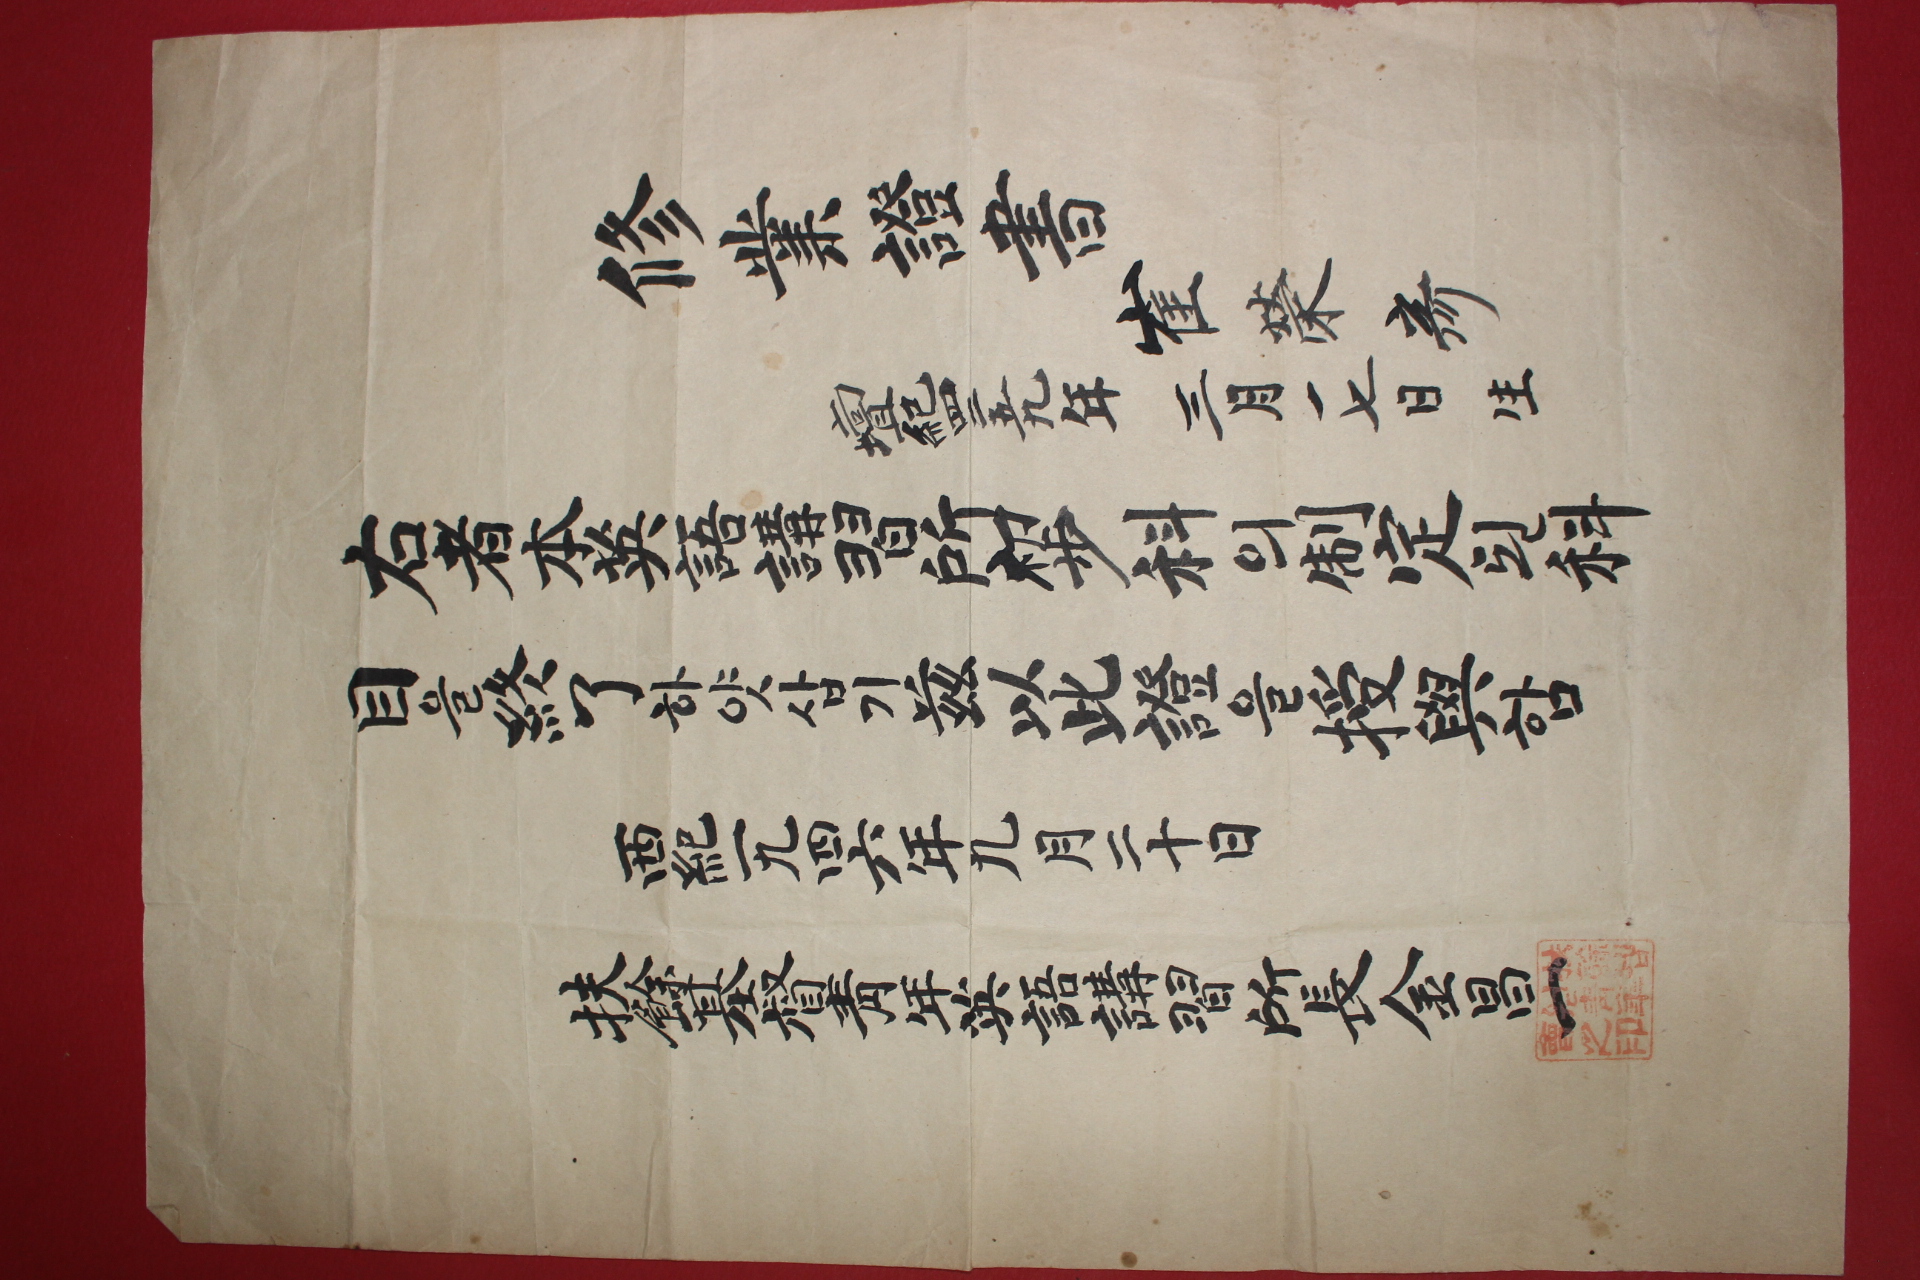 修業證書
崔榮
檀紀四二五九年 三月一七日生
右者本英語講習所初步科의制定된科
目을終了하얏삼기玆以此證을授與함
西紀一九四六年九月二十日
扶餘基督靑年英語講習所長金昌一